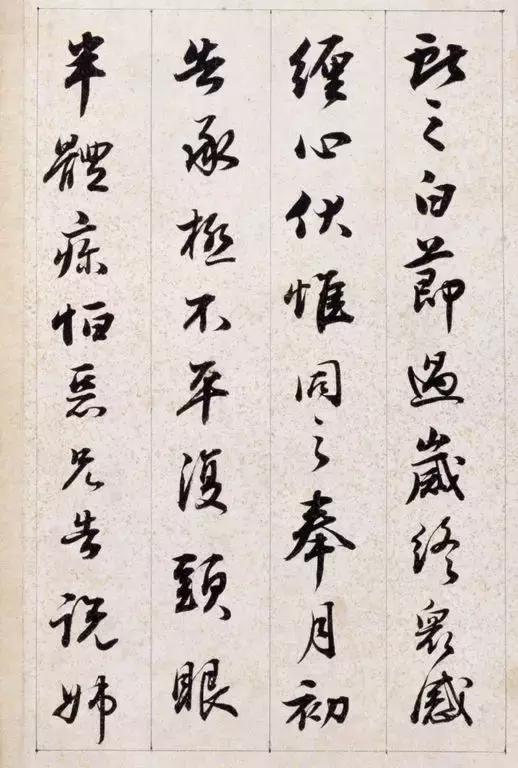 獻之白節過歲終衆感
纏心伏惟同之奉月初
告承極不平復頭眼
半體疼怕惡兄告說姊